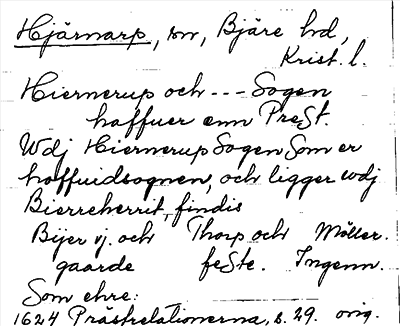 Hjärnarp, sn, Bjäre hd,
Krist. l.
Hiernerup och --- Sogen
haffuer enn PreSt.
Wdj Hiernerup Sogen Som er
hoffuidsognen, och ligger wdj
Bierreherrit, findis
Bÿer vj. och Thorp och Möller.
gaarde feSte. Ingenn.
Som ehre:
1624 Prästrelationerna, s. 29. orig.